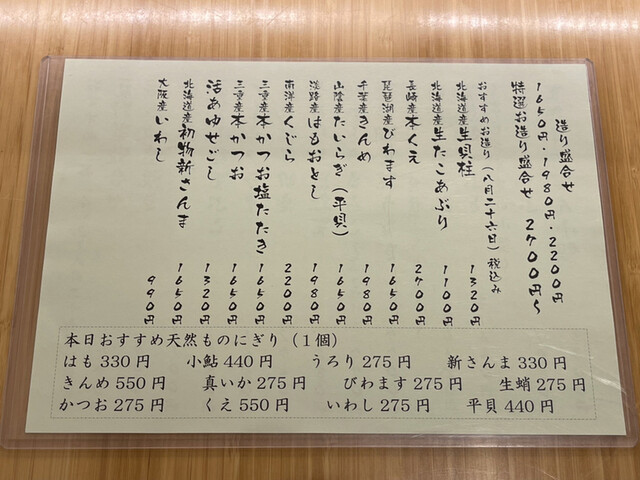 造り盛合せ
1650円・1980円・2200円
特選お造り盛合せ 2700円〜
おすすめお造り(八月二十六日)税込み
北海道産生貝柱 1320円
北海道産生たこあぶり 1100円
長崎産本くえ 2700円
琵琶湖産びわます 1650円
千葉産きんめ 1980円
山陰産たいらぎ(平貝) 1650円
淡路産はもおとし 1980円
南洋産くじら 2200円
三重産本かつお 1650円
三重産本かつお塩たたき 1650円
活あゆせごし 1320円
北海道産初物新さんま 1650円
大阪産いわし 990円
本日おすすめ天然ものにぎり(1個)
はも330円 小鮎440円 うろり275円 新さんま330円
きんめ550円 真いか275円 びわます275円 生蛸275円
かつお275円 くえ550円 いわし275円 平貝440円